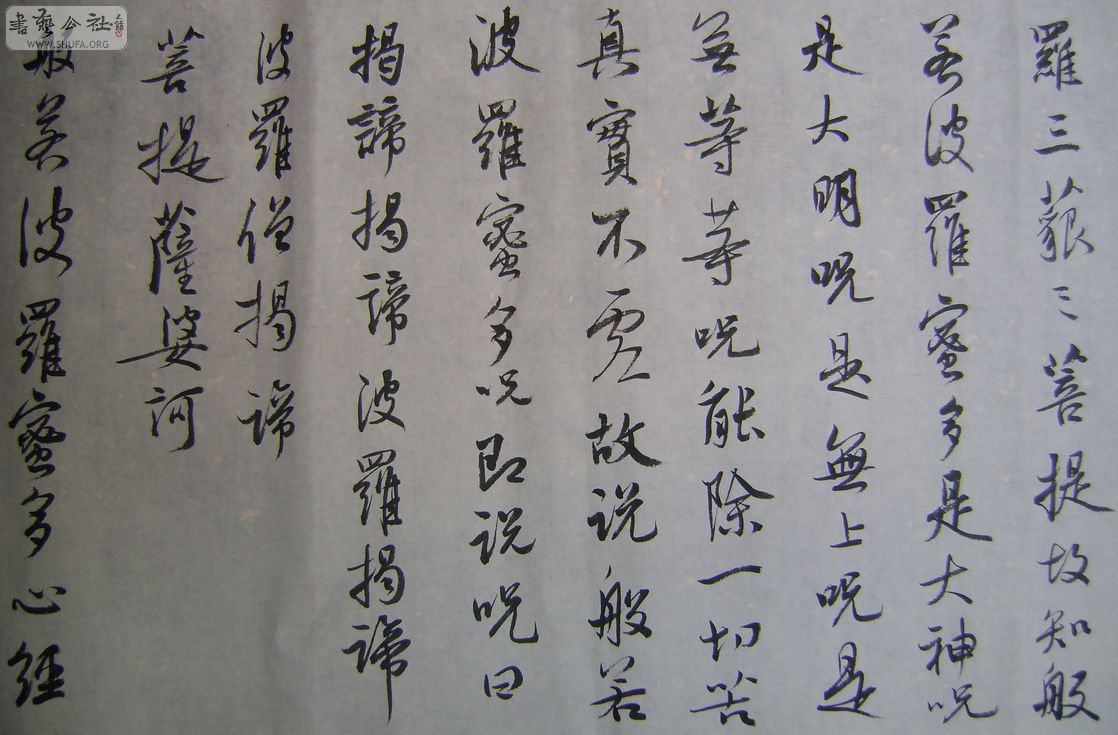 羅三藐三菩提故知般
若波羅蜜多是大神咒
是大明咒是無上咒是
無等等咒能除一切苦
真實不虛故说般若
波羅蜜多咒即说咒曰
揭諦揭諦波羅揭諦
波羅僧揭諦
菩提薩婆訶
般若波羅蜜多心經
書藝公社
WWW.SHUFA.ORG